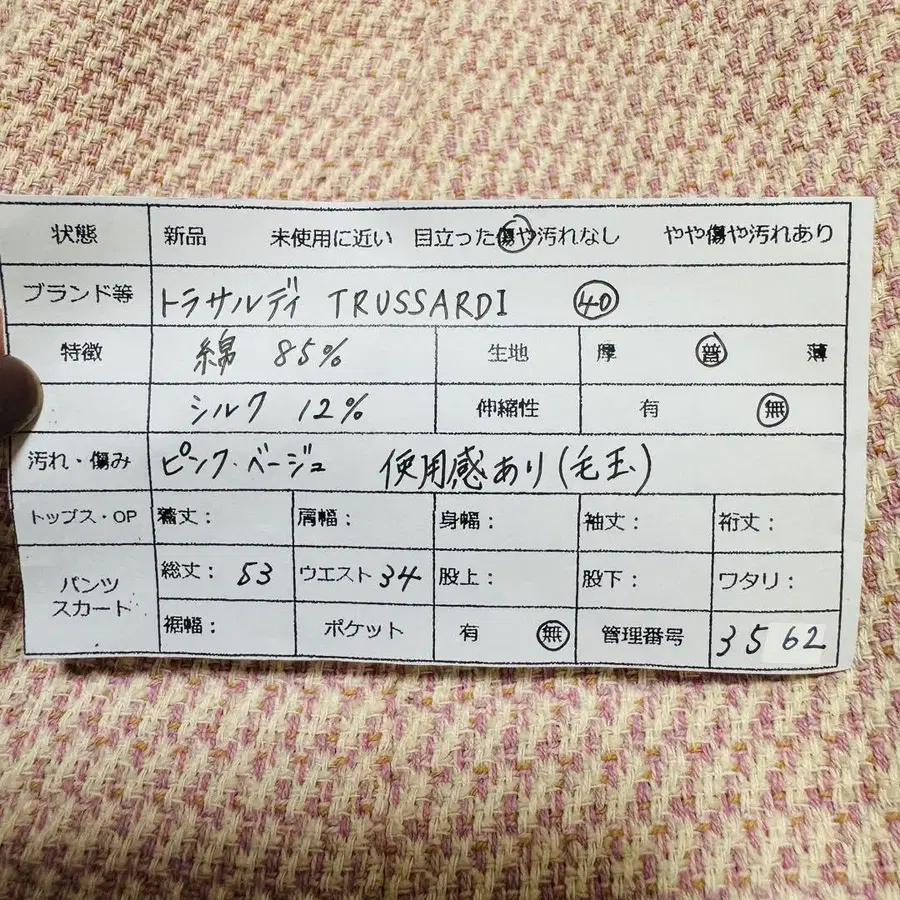 状態 新品 未使用に近い 目立った傷や汚れなし やや傷や汚れあり
ブランド等 トラサルディ TRUSSARDI 40
特徴 綿 85% 生地 厚 普 薄
シルク 12% 伸縮性 有 無
汚れ・傷み ピンク・ベージュ 使用感あり(毛玉)
トップス・OP 着丈: 肩幅: 身幅: 袖丈: 裄丈:
パンツ スカート 総丈: 53 ウエスト 34 股上: 股下: ワタリ:
裾幅: ポケット 有 無 管理番号 3562